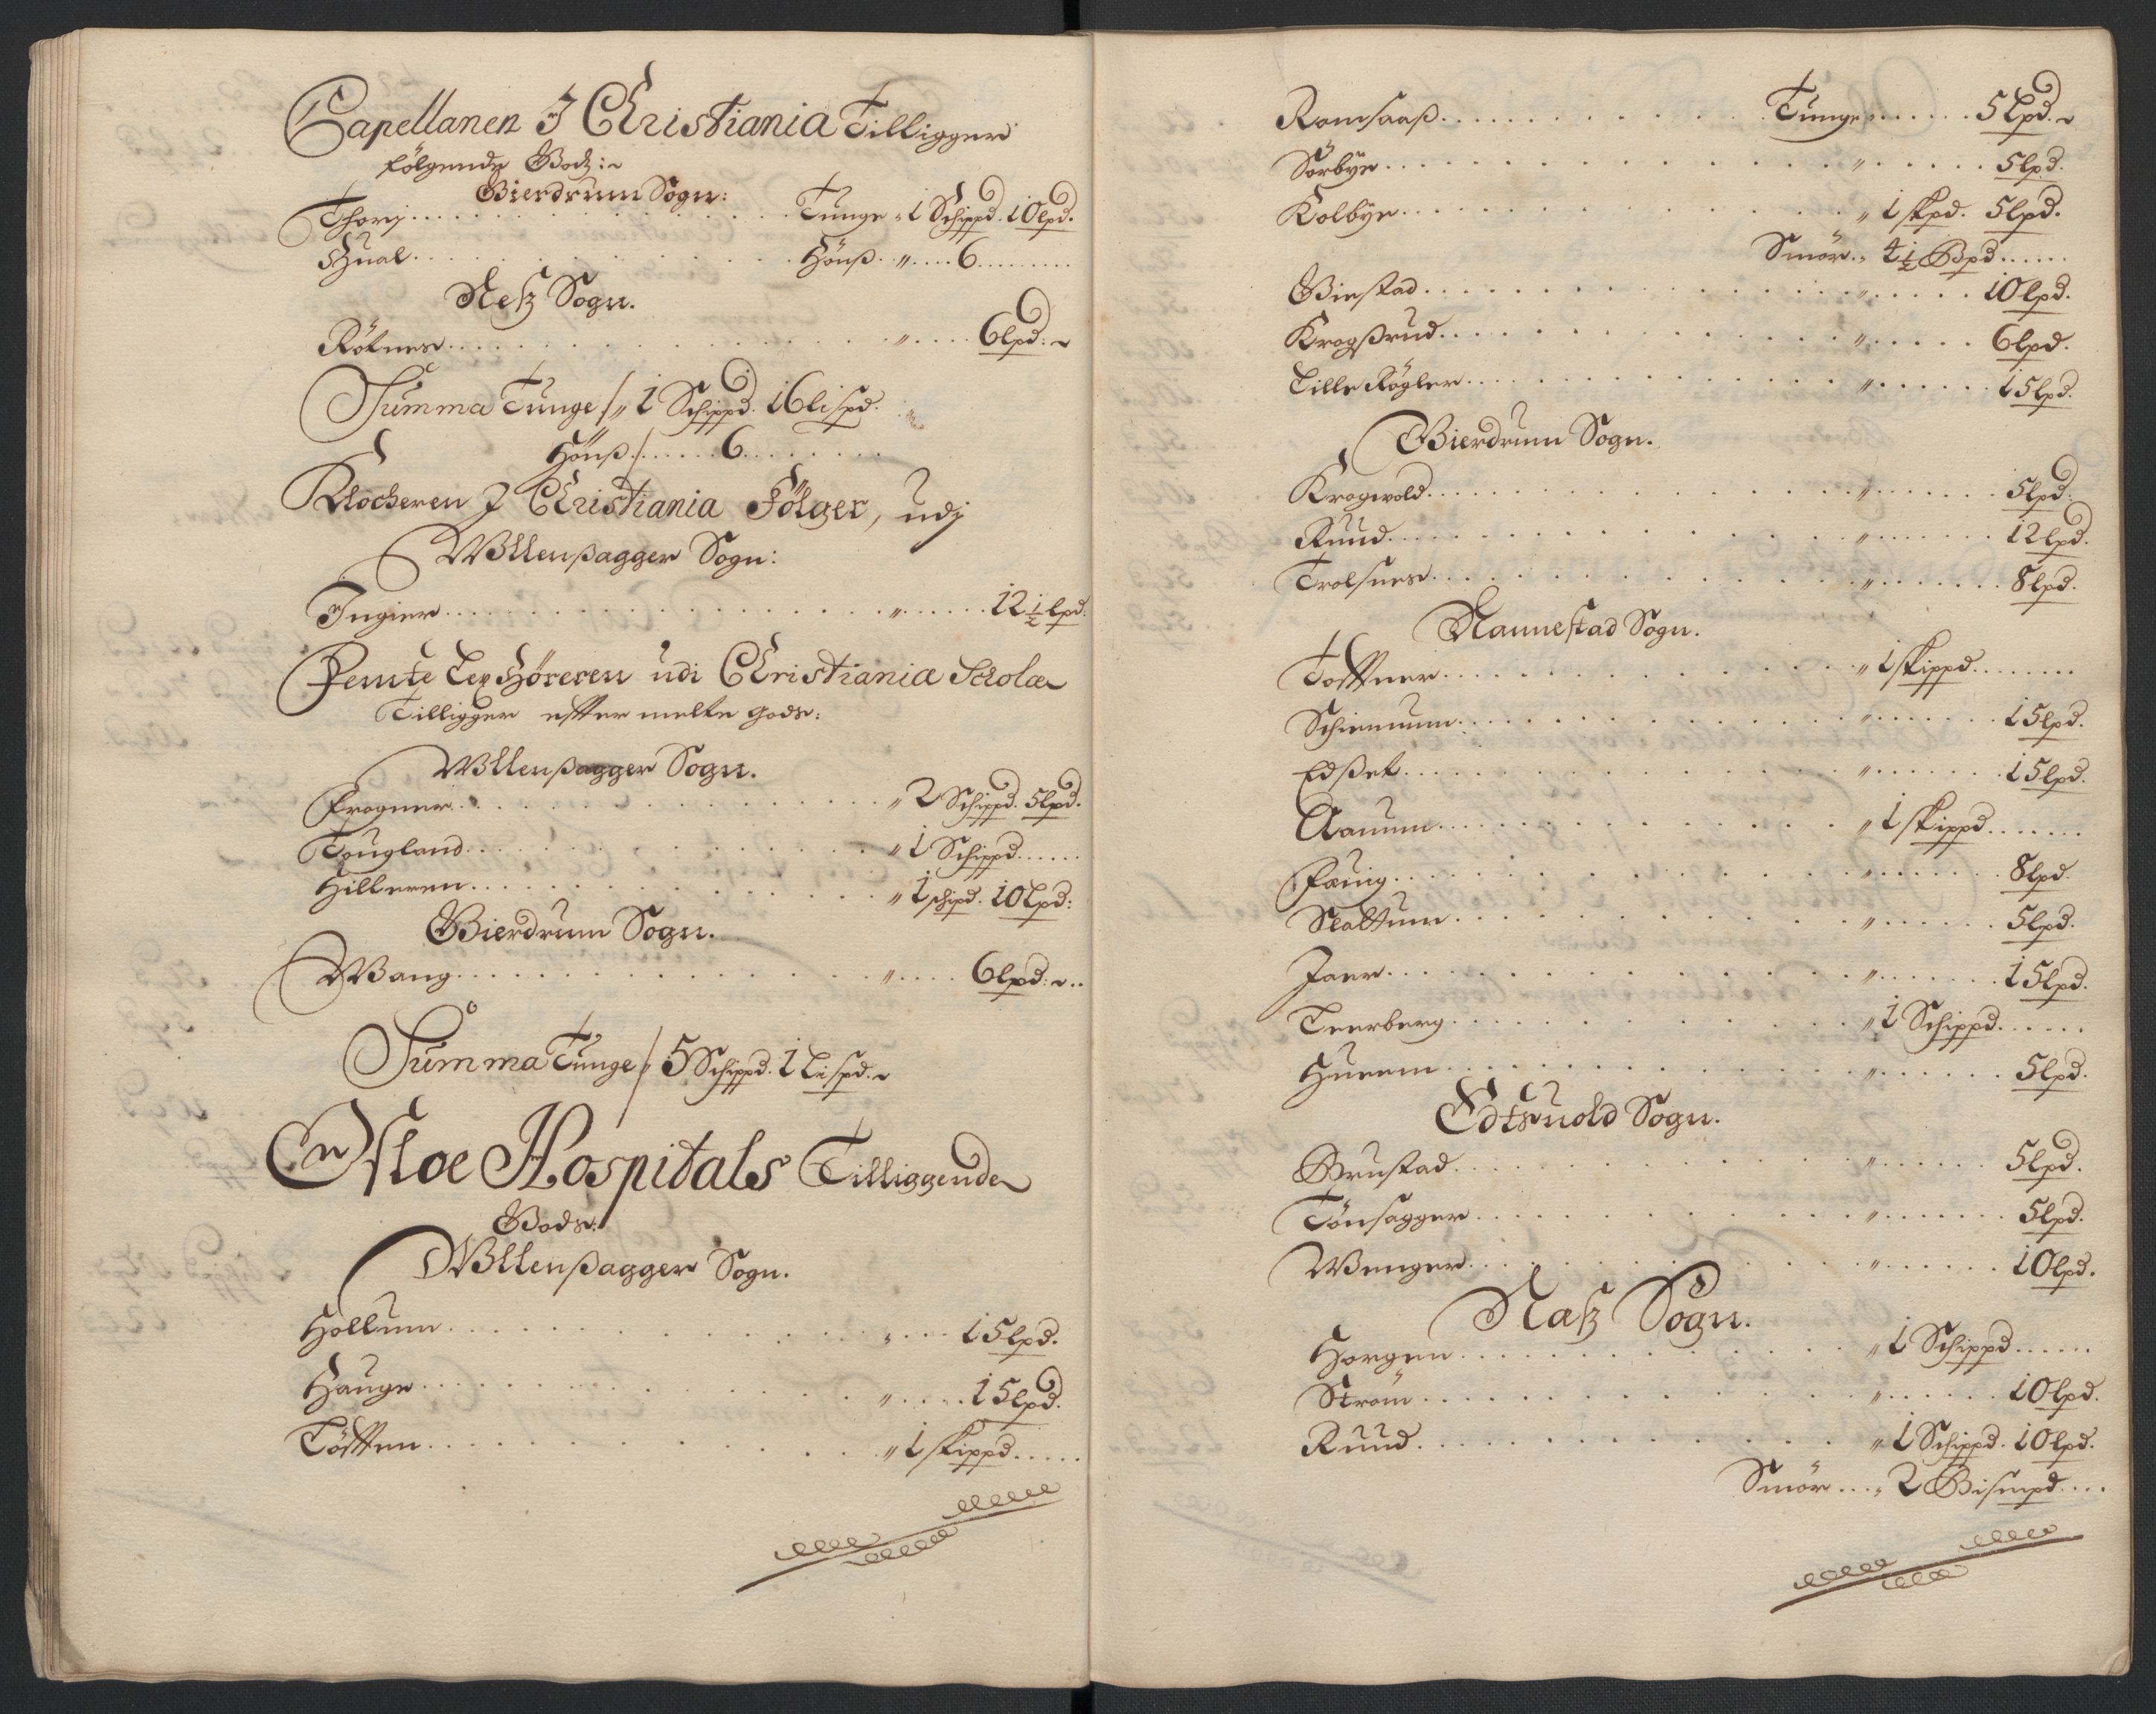 Capellanen I Christiania Tilligger
følgende Godtz:
Gierdrum Sogn:
Thorj . . . Tunge „ 1 Schippd. 10 lpd.
Hual . . . Hönß „ . . . 6 . . .
Neß Sogn.
Rötnes . . . „ . . . 6 lpd:
Summa Tunge /„ 1 Schippd. 16 lispd.
Hönß / . . . 6 . . .
Klocheren I Christiania Fölger, udj
Wllenßagger Sogn:
Ingier . . . „ . . . 12½ lpd:
Femte Lex Höreren udi Christiania Schola
Tilligger effter melte gods:
Wllenßagger Sogn.
Frogner . . . „ 2 Schippd. 5 lpd.
Tougland . . . „ 1 Schippd . . .
Hilleren . . . „ 1 schipd. 10 lpd:
Gierdrum Sogn.
Wang . . . „ . . . 6 lpd:
Summa Tunge /„ 5 Schippd. 1 Lispd.
Osloe Hospitals Tilliggende
Gods:
Wllenßagger Sogn.
Hollum . . . „ . . . 15 lpd.
Hauge . . . „ . . . 15 lpd.
Töfften . . . „ 1 skippd . . .
Romsaaß . . . Tunge „ . . . 5 lpd.
Sörbye . . . „ . . . 5 lpd.
Kolbye . . . „ 1 skpd. 5 lpd.
Smör . „ 4½ Bpd . . .
Giestad . . . „ . . . 10 lpd.
Krogßrud . . . „ . . . 6 lpd.
Lille Rögler . . . „ . . . 15 lpd.
Gierdrum Sogn.
Krogvold . . . „ . . . 5 lpd:
Ruud . . . „ . . . 12 lpd.
Trolsnes . . . „ . . . 8 lpd.
Nannestad Sogn.
Tofftner . . . „ 1 skippd . . .
Schiennum . . . „ . . . 15 lpd.
Edßet . . . „ . . . 15 lpd.
Aanum . . . „ 1 skippd . . .
Fæuig . . . „ . . . 8 lpd.
Slattum . . . „ . . . 5 lpd.
Jaer . . . „ . . . 15 lpd.
Leerberg . . . „ 1 Schippd . . .
Hurem . . . „ . . . 5 lpd.
Edtsuold Sogn.
Brustad . . . „ . . . 5 lpd.
Tönsagger . . . „ . . . 5 lpd.
Wenger . . . „ . . . 10 lpd.
Naß Sogn.
Horgen . . . „ 1 Schippd . . .
Ström . . . „ . . . 10 lpd.
Ruud . . . „ 1 Schippd. 10 lpd.
Smör . . . „ 2 Bismpd . . .